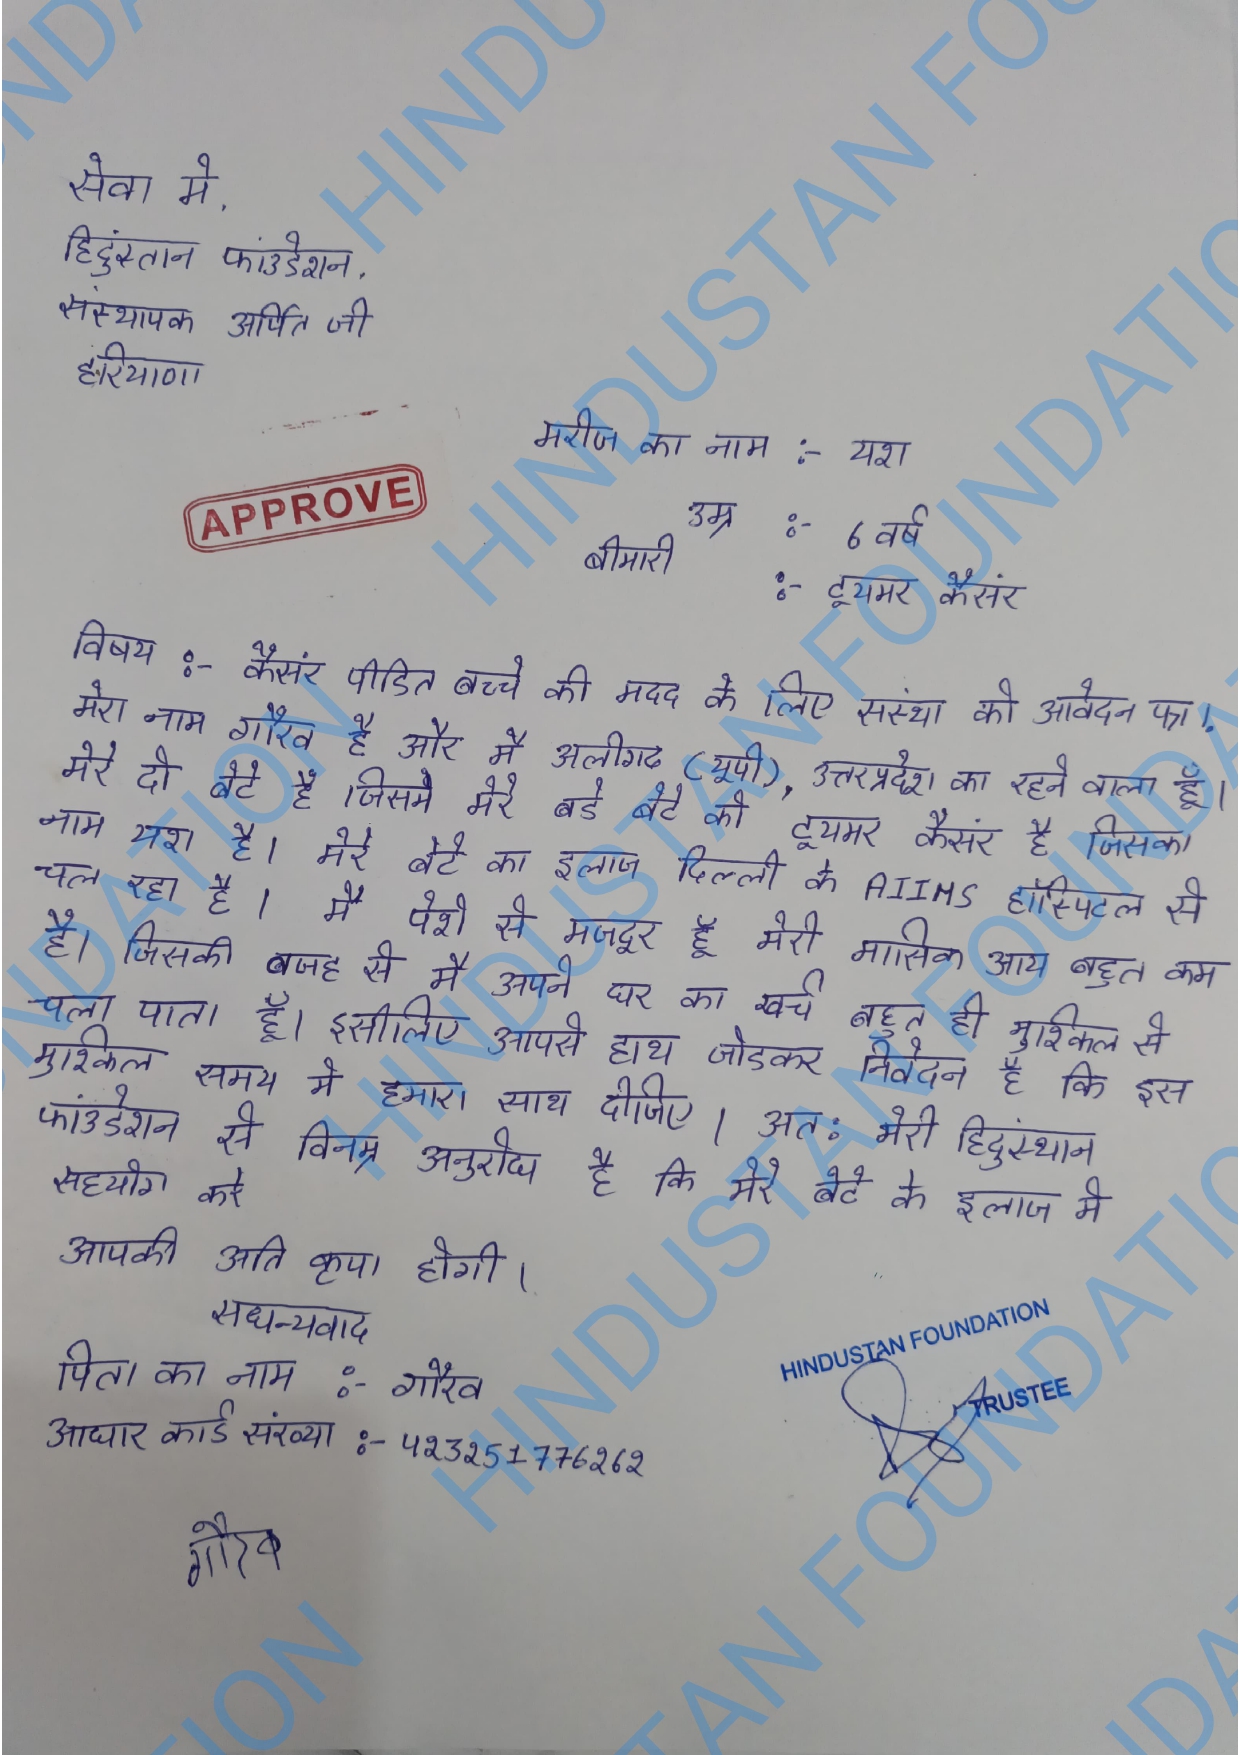 सेवा मे,
हिदुंस्तान फांउडेशन,
संस्थापक अर्पित जी
हरियाणा
मरीज का नाम :- यश
APPROVE
उम्र :- 6 वर्ष
बीमारी :- टूयमर कैसंर
विषय :- कैसंर पीडित बच्चे की मदद के लिए संस्था को आवेदन पत्र।
मेरा नाम गौरव है और मै अलीगढ (यूपी), उत्तरप्रदेश का रहने वाला हूँ।
मेरे दो बेटे है। जिसमे मेरे बडे बेटे को टूयमर कैसंर है जिसका
नाम यश है। मेरे बेटे का इलाज दिल्ली के AIIMS हॉस्पिटल से
चल रहा है। मै पेशे से मजदूर हूँ मेरी मासिक आय बहुत कम
है। जिसकी बजह से मै अपने घर का खर्च बहुत ही मुश्किल से
चला पाता हूँ। इसीलिए आपसे हाथ जोडकर निवेदन है कि इस
मुश्किल समय मे हमारा साथ दीजिए। अत: मेरी हिदुंस्थान
फांउडेशन से विनम्र अनुरोध है कि मेरे बेटे के इलाज मे
सहयोग करे
आपकी अति कृपा होगी।
सधन्यवाद
पिता का नाम :- गौरव
आधार कार्ड संख्या :- 423251776262
HINDUSTAN FOUNDATION
TRUSTEE
गौरव
HINDUSTAN FOUNDATION